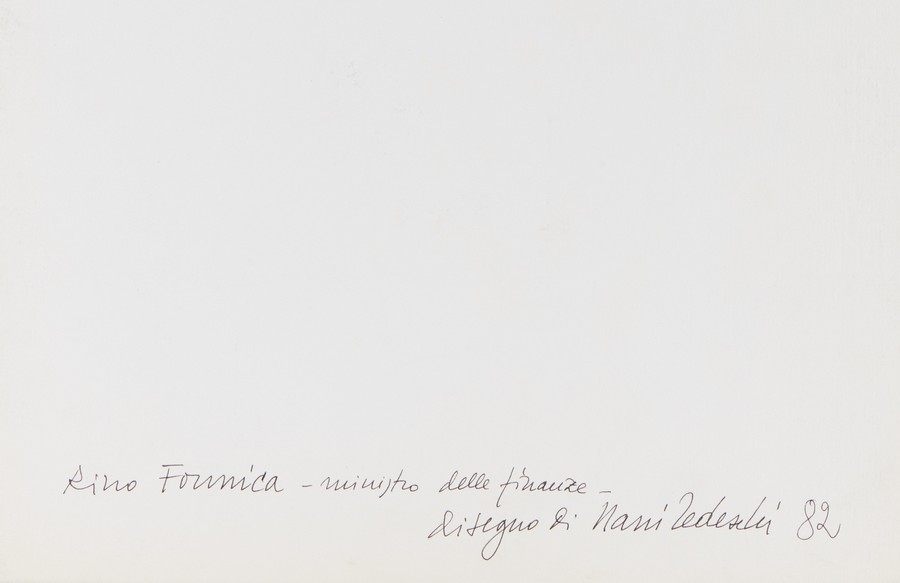 Rino Formica - ministro delle finanze -
disegno di Nani Tedeschi 82